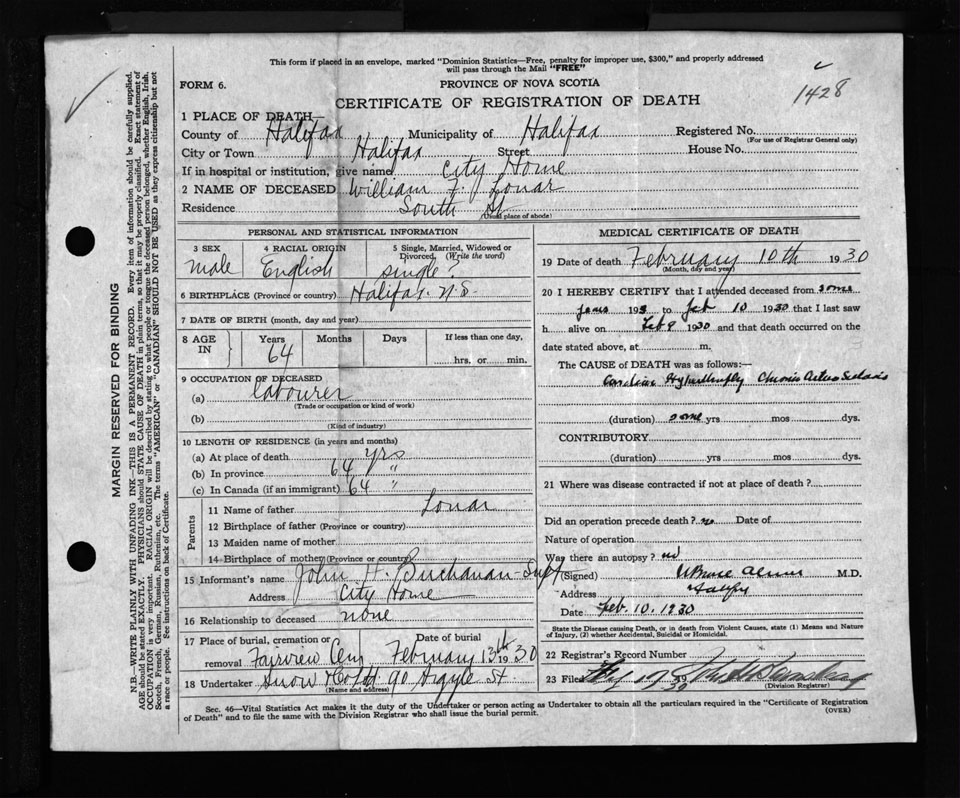 This form if placed in an envelope, marked "Dominion Statistics—Free, penalty for improper use, $300," and properly addressed
will pass through the Mail "FREE"
FORM 6.
PROVINCE OF NOVA SCOTIA
1428
CERTIFICATE OF REGISTRATION OF DEATH
1 PLACE OF DEATH
County of Halifax Municipality of Halifax Registered No.
(For use of Registrar General only)
City or Town Halifax Street House No.
If in hospital or institution, give name City Home
2 NAME OF DECEASED William F. Lonar
Residence South St
(Usual place of abode)
PERSONAL AND STATISTICAL INFORMATION
3 SEX 4 RACIAL ORIGIN 5 Single, Married, Widowed or
Divorced. (Write the word)
male English single?
6 BIRTHPLACE (Province or country) Halifax. N.S.
7 DATE OF BIRTH (month, day and year)
8 AGE IN Years Months Days If less than one day,
64 hrs. or min.
9 OCCUPATION OF DECEASED
(a) labourer
(Trade or occupation or kind of work)
(b)
(Kind of industry)
10 LENGTH OF RESIDENCE (in years and months)
(a) At place of death yrs
(b) In province 64 "
(c) In Canada (if an immigrant) 64 "
Parents
11 Name of father Lonar
12 Birthplace of father (Province or country)
13 Maiden name of mother
14 Birthplace of mother (Province or country)
15 Informant's name John H. Buchanan-Supt
Address City Home
16 Relationship to deceased none
17 Place of burial, cremation or Date of burial
removal Fairview Cem February 13th 1930
18 Undertaker Snow & Co Ltd 90 Argyle St
(Name and address)
MEDICAL CERTIFICATE OF DEATH
19 Date of death February 10th 1930
(Month, day and year)
20 I HEREBY CERTIFY that I attended deceased from some
years 193 to Feb 10 1930 that I last saw
h alive on Feb 9 1930 and that death occurred on the
date stated above, at m.
The CAUSE OF DEATH was as follows:—
Cardiac Chronic
(duration) some yrs mos dys.
CONTRIBUTORY
(duration) yrs mos dys.
21 Where was disease contracted if not at place of death?
Did an operation precede death? no Date of
Nature of operation
Was there an autopsy? no
(Signed) M.D.
Address Halifax
Date Feb. 10. 1930
State the Disease causing Death, or in death from Violent Causes, state (1) Means and Nature
of Injury, (2) whether Accidental, Suicidal or Homicidal.
22 Registrar's Record Number
23 Filed 1930
(Division Registrar)
Sec. 46—Vital Statistics Act makes it the duty of the Undertaker or person acting as Undertaker to obtain all the particulars required in the "Certificate of Registration
of Death" and to file the same with the Division Registrar who shall issue the burial permit.
(OVER)
MARGIN RESERVED FOR BINDING
N.B.—WRITE PLAINLY WITH UNFADING INK—THIS IS A PERMANENT RECORD. Every item of information should be carefully supplied.
AGE should be stated EXACTLY. PHYSICIANS should STATE CAUSE OF DEATH in plain terms, so that it may be properly classified. Exact statement of
OCCUPATION is very important. RACIAL ORIGIN will be described by stating to what people or tongue the deceased person belonged, whether English, Irish,
Scotch, French, German, Russian, Ruthenian, etc. The terms "AMERICAN" or "CANADIAN" SHOULD NOT BE USED as they express citizenship but not
a race or people. See instructions on back of Certificate.